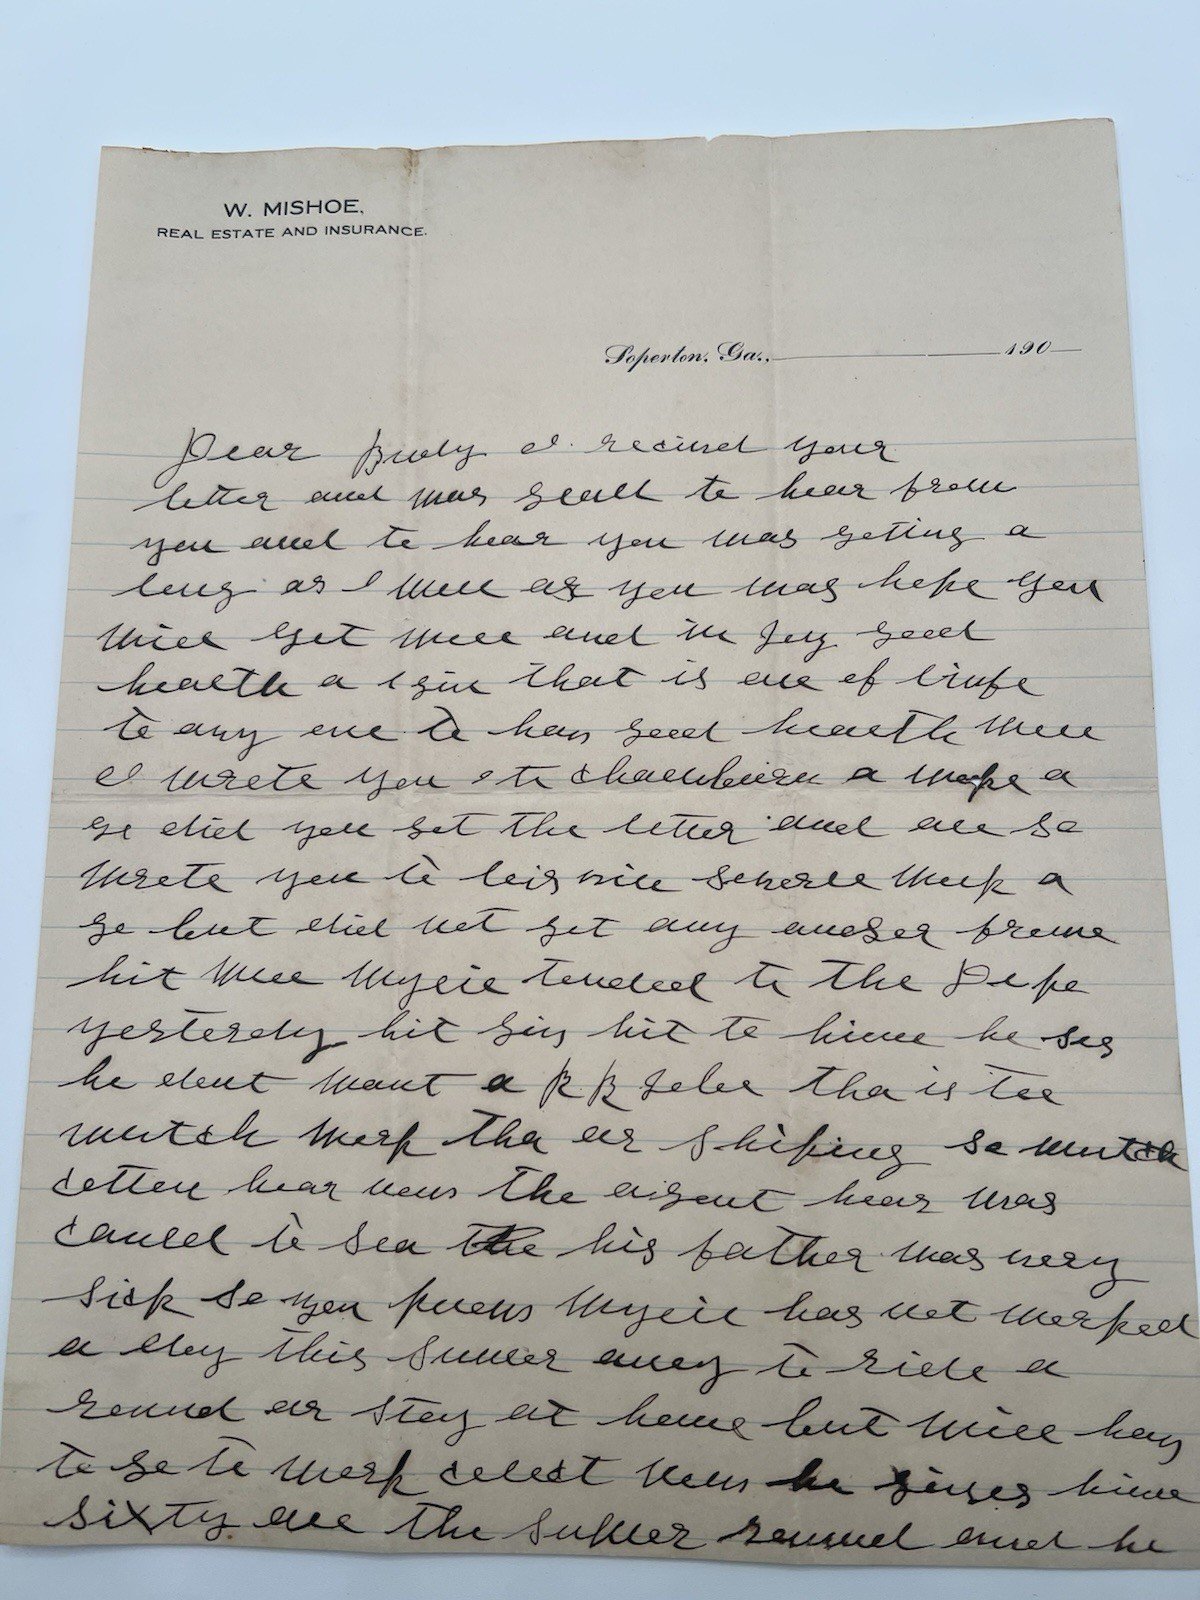 W. MISHOE,
REAL ESTATE AND INSURANCE.
Soperton, Ga., 190
Dear I recived your
letter and was glad to hear from
you and to hear you was geting a
long as well as you was hope you
will get well and in good
health a gin that is one of
to any one to hav good health well
I wrote you to a week a
go did you get the letter and
wrote you to week a
go but did not get any anser from
hit well tended to the Depo
yesterdy hit giv hit to him he ses
he dont want a R R Jobe tha is too
mutch work tha ar shiping so mutch
cotten hear now the agent hear was
caled to sea the his father was very
sick so you know has not worked
a day this summer only to ride a
round or stay at home but will hav
to go to work colect now he gives him
sixty all the summer round and he